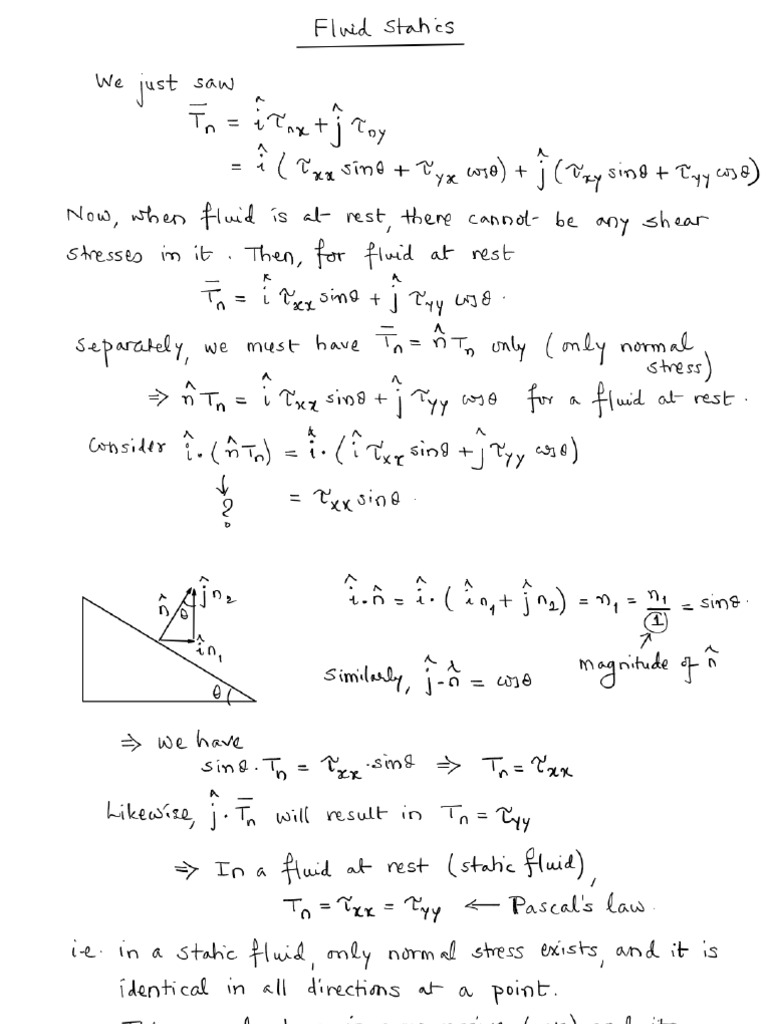 Fluid Statics
We just saw
T̄ₙ = î τₙₓ + ĵ τₙᵧ
= î ( τₓₓ sinθ + τᵧₓ cosθ) + ĵ (τₓᵧ sinθ + τᵧᵧ cosθ)
Now, when fluid is at rest, there cannot be any shear
stresses in it. Then, for fluid at rest
T̄ₙ = î τₓₓ sinθ + ĵ τᵧᵧ cosθ.
Separately, we must have T̄ₙ = n̂ Tₙ only (only normal
stress)
⇒ n̂ Tₙ = î τₓₓ sinθ + ĵ τᵧᵧ cosθ for a fluid at rest.
Consider î·(n̂Tₙ) = î·(î τₓₓ sinθ + ĵ τᵧᵧ cosθ)
↓
?
= τₓₓ sinθ.
n̂ θ ĵn₂
în₁
θ
î·n̂ = î·(în₁ + ĵn₂) = n₁ = n₁/1 = sinθ.
magnitude of n̂
Similarly, ĵ·n̂ = cosθ
⇒ we have
sinθ·Tₙ = τₓₓ·sinθ ⇒ Tₙ = τₓₓ
Likewise, ĵ·T̄ₙ will result in Tₙ = τᵧᵧ
⇒ In a fluid at rest (static fluid),
Tₙ = τₓₓ = τᵧᵧ ← Pascal's law.
i.e. in a static fluid, only normal stress exists, and it is
identical in all directions at a point.